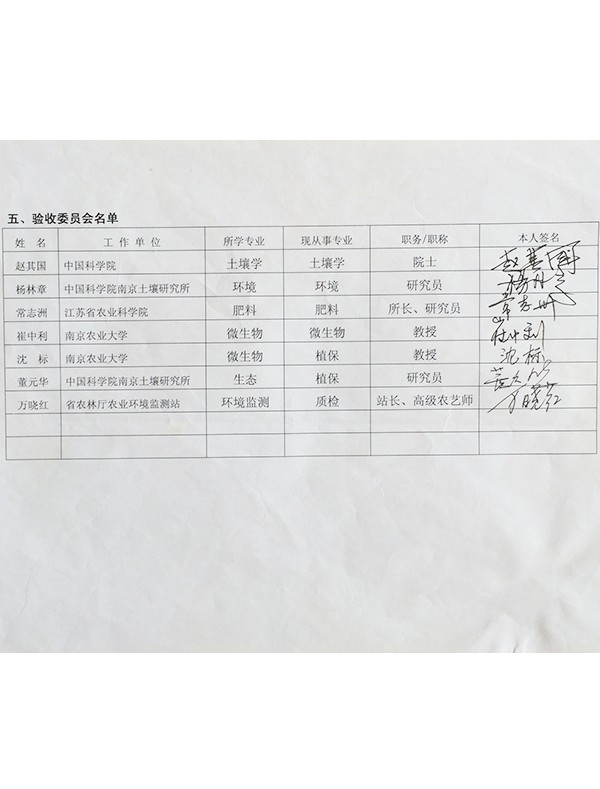 五、验收委员会名单
姓 名 工 作 单 位 所学专业 现从事专业 职务/职称 本人签名
赵其国 中国科学院 土壤学 土壤学 院士 赵其国
杨林章 中国科学院南京土壤研究所 环境 环境 研究员
常志洲 江苏省农业科学院 肥料 肥料 所长、研究员 常志州
崔中利 南京农业大学 微生物 微生物 教授 崔中利
沈 标 南京农业大学 微生物 植保 教授 沈标
董元华 中国科学院南京土壤研究所 生态 植保 研究员
万晓红 省农林厅农业环境监测站 环境监测 质检 站长、高级农艺师 万晓红